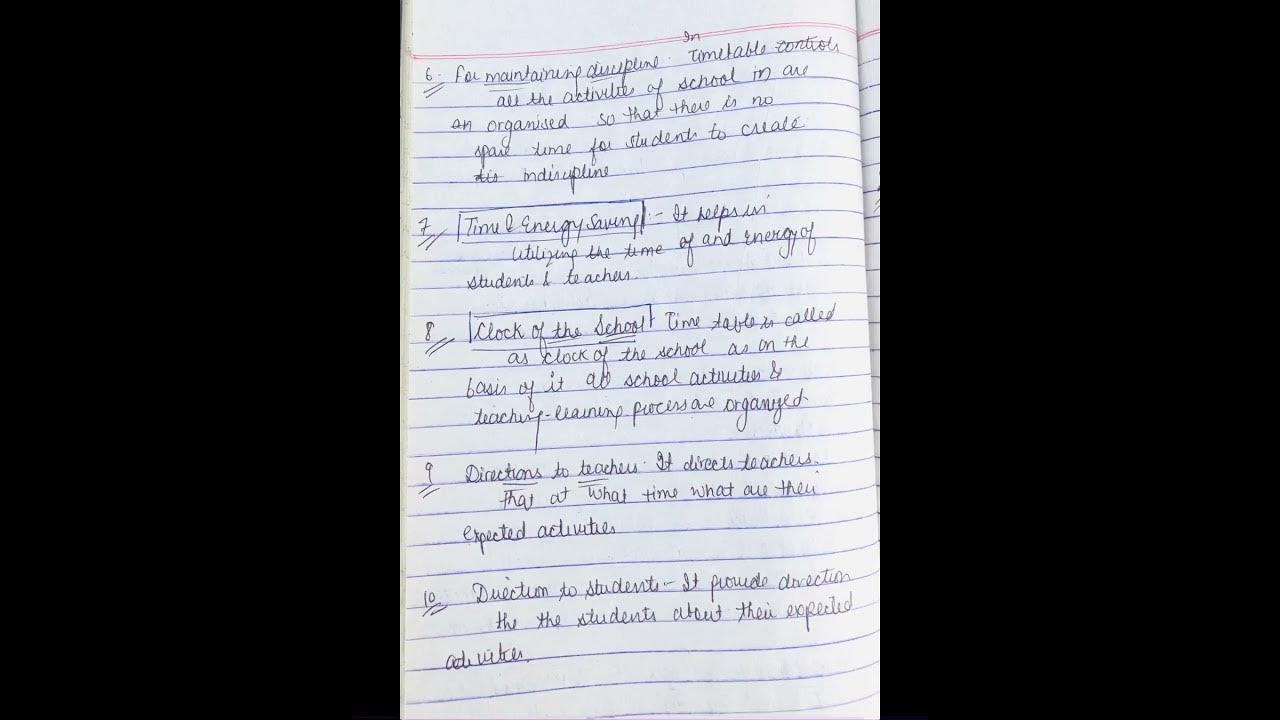 In
6. For maintaining discipline. Timetable controls
all the activities of school in are
an organised so that there is no
spare time for students to create
dis indiscipline
7 Time & Energy Saving :- It helps in
utilizing the time of and energy of
students & teachers.
8 Clock of the School Time table is called
as clock of the school as on the
basis of it all school activities &
teaching-learning process are organized.
9 Directions to teachers. It directs teachers.
that at what time what are their
expected activities
10 Direction to students:- It provide direction
the the students about their expected
activities.